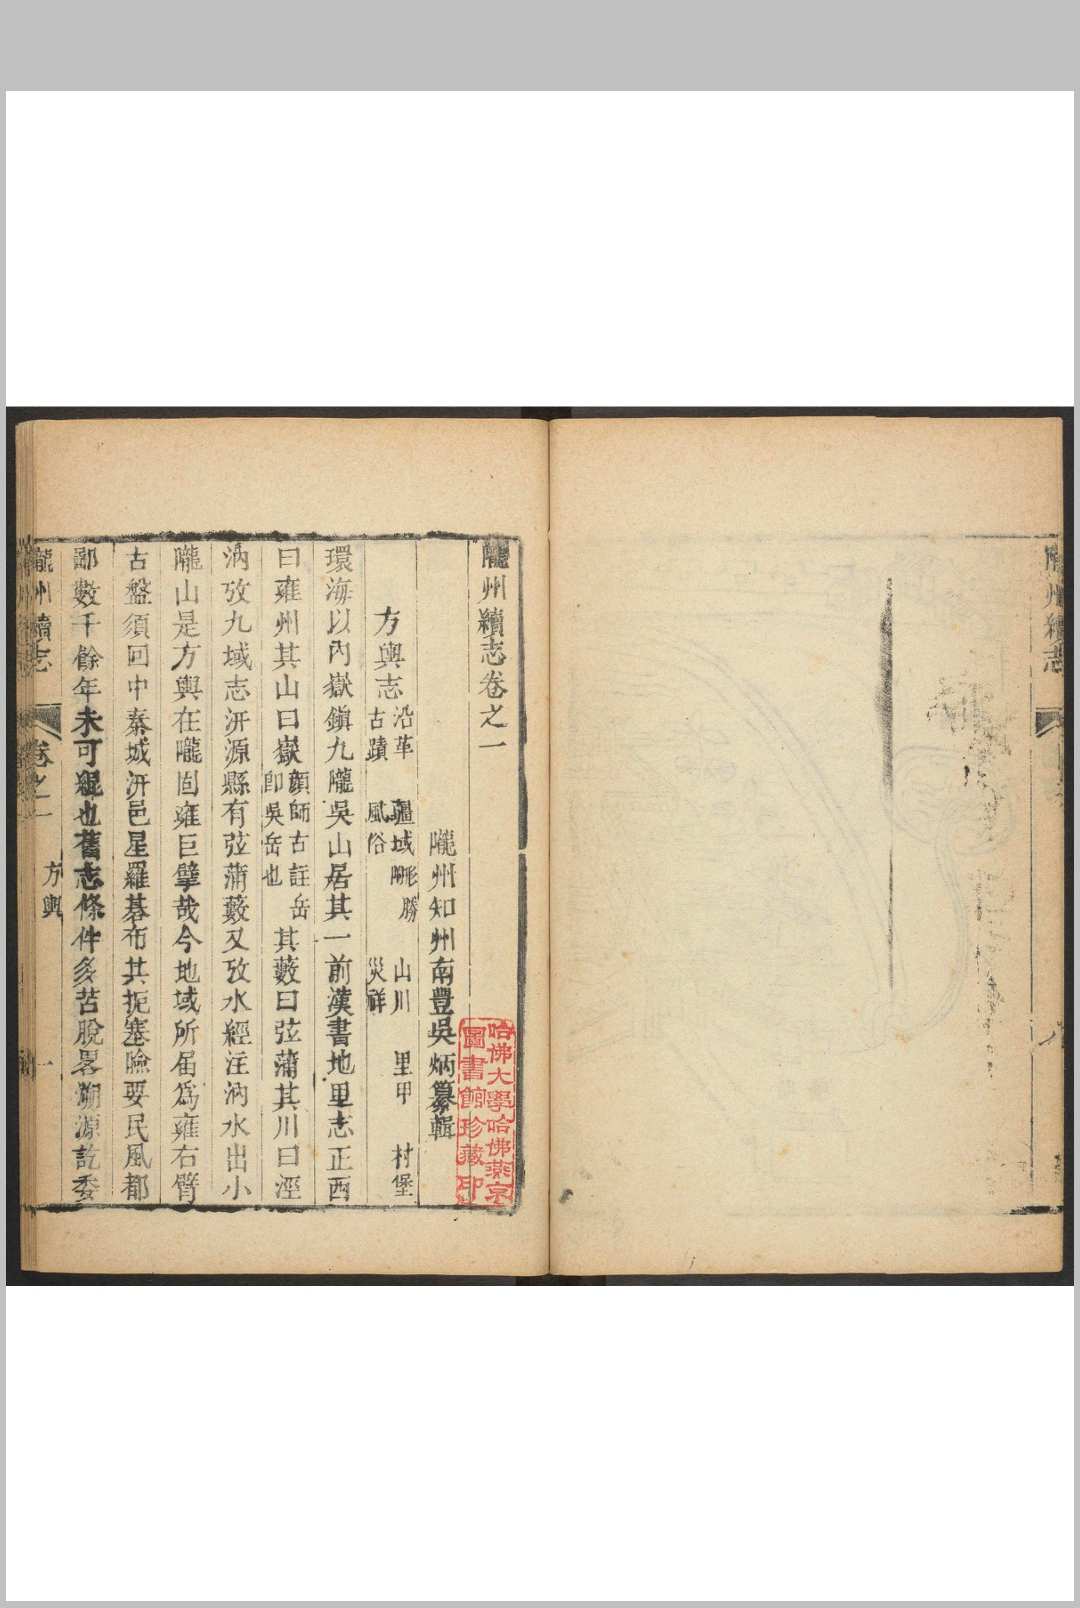 隴州續志
隴州續志卷之一
隴州知州南豐吳炳纂輯
方輿志 沿革 疆域 形勝 山川 里甲 村堡
古蹟 風俗 災祥
環海以內嶽鎭九隴吳山居其一前漢書地里志正西
曰雍州其山曰嶽顔師古註岳
卽吳岳也其藪曰弦蒲其川曰涇
汭攷九域志汧源縣有弦蒲藪又攷水經注汭水出小
隴山是方輿在隴固雍巨擘哉今地域所屆爲雍右臂
古盤須回中秦城汧邑星羅碁布其扼塞險要民風都
鄙數千餘年未可緄也舊志條件多苦脫畧溯源訖委
隴州續志 卷之一 方輿 一
哈佛大學哈佛燕京
圖書館珍藏印